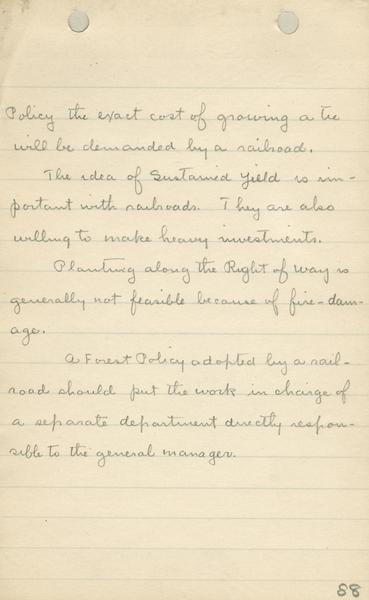 Policy the exact cost of growing a tie
will be demanded by a railroad.
The idea of Sustained Yield is im-
portant with railroads. They are also
willing to make heavy investments.
Planting along the Right of Way is
generally not feasible because of fire-dam-
age.
A Forest Policy adopted by a rail-
road should put the work in charge of
a separate department directly respon-
sible to the general manager.
88